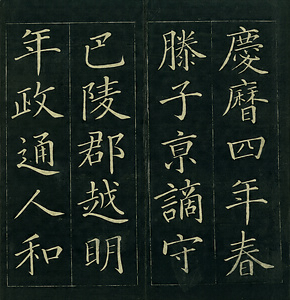 慶曆四年春
滕子京謫守
巴陵郡越明
年政通人和